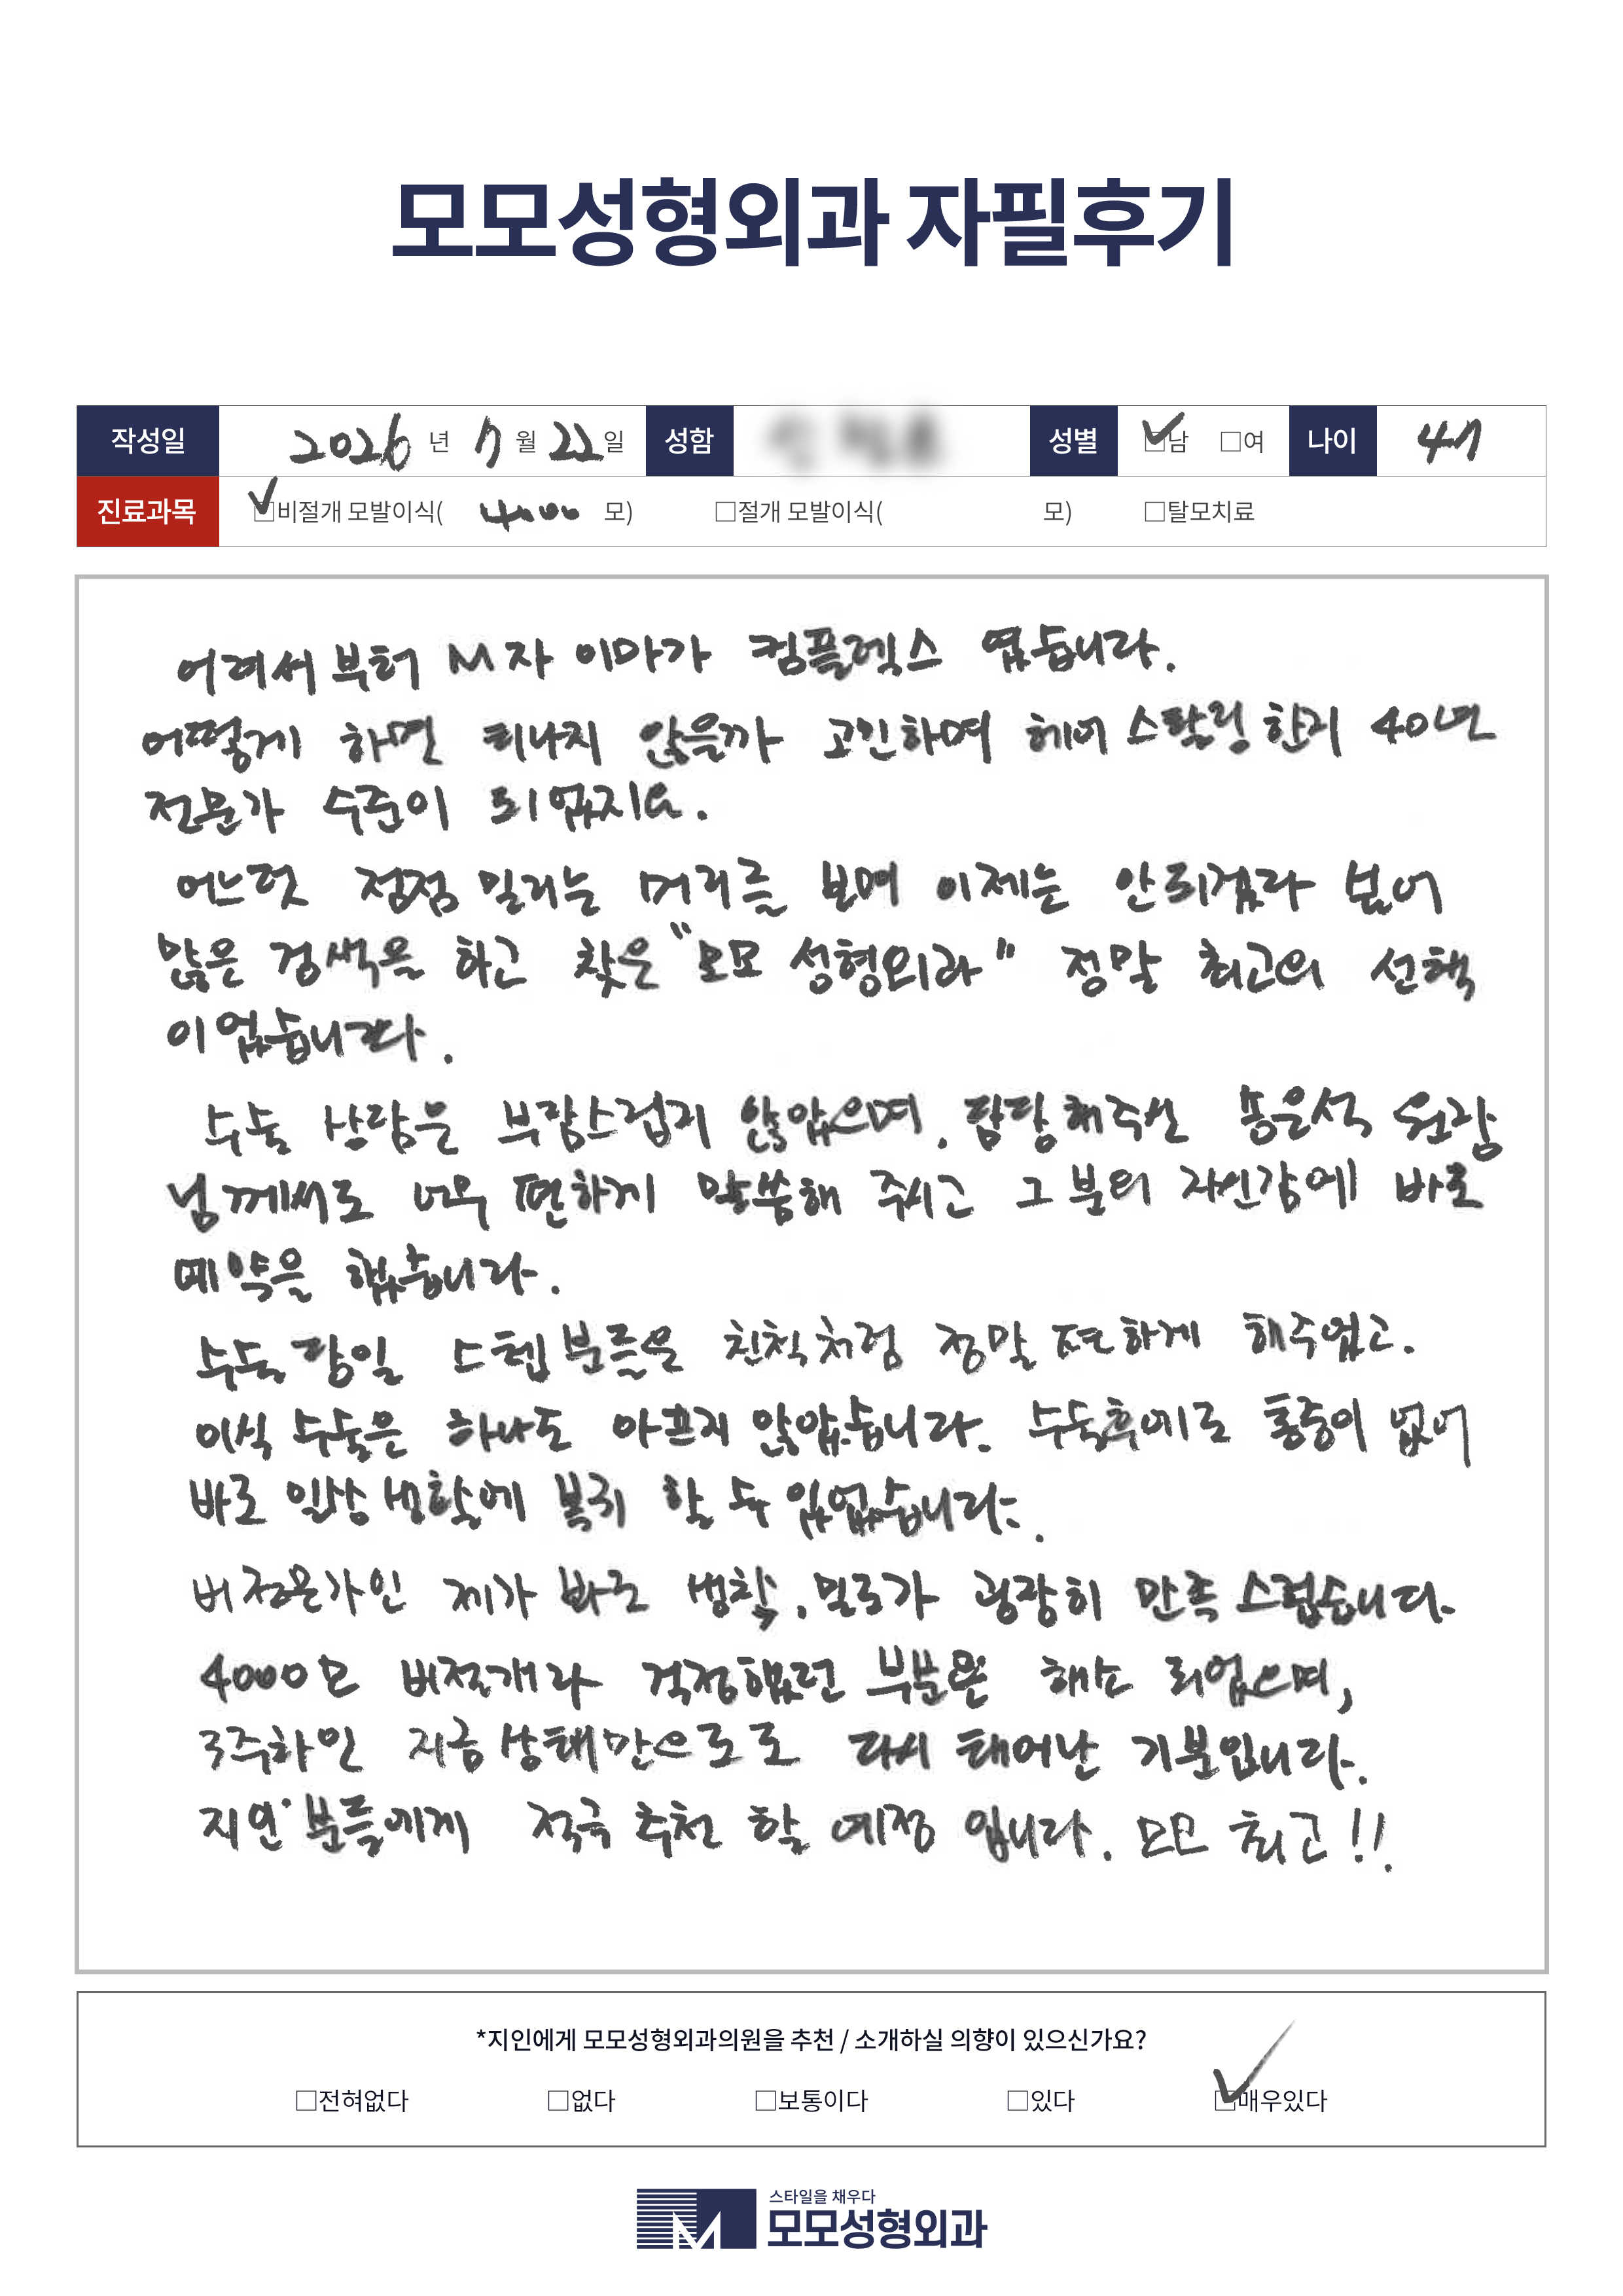 모모성형외과 자필후기
작성일 2026 년 7 월 22 일 성함 성별 ☑남 □여 나이 47
진료과목 ☑비절개 모발이식( 4000 모) □절개 모발이식( 모) □탈모치료
어려서부터 M자 이마가 컴플렉스 였습니다.
어떻게 하면 티나지 않을까 고민하며 헤어 스탈링 한지 40년
전문가 수준이 되었지요.
어느덧 점점 밀리는 머리를 보며 이제는 안되겠다 싶어
많은 검색을 하고 찾은 "모모 성형외과" 정말 최고의 선택
이었습니다.
수술 상담은 부담스럽지 않았으며, 담당해주신 송은석 원장
님께서도 너무 편하게 말씀해 주시고 그 분의 자신감에 바로
예약을 했습니다.
수술 당일 스텝분들은 친척처럼 정말 편하게 해주었고.
이식 수술은 하나도 아프지 않았습니다. 수술후에도 통증이 없어
바로 일상 생활에 복귀 할 수 있었습니다.
비전문가인 제가 봐도 생착, 밀도가 굉장히 만족스럽습니다.
4000모 비절개라 걱정했던 부분은 해소 되었으며,
3주차인 지금 상태만으로도 다시 태어난 기분입니다.
지인분들에게 적극 추천 할 예정 입니다. 모모 최고!!
*지인에게 모모성형외과의원을 추천 / 소개하실 의향이 있으신가요?
□전혀없다 □없다 □보통이다 □있다 ☑매우있다
스타일을 채우다
모모성형외과